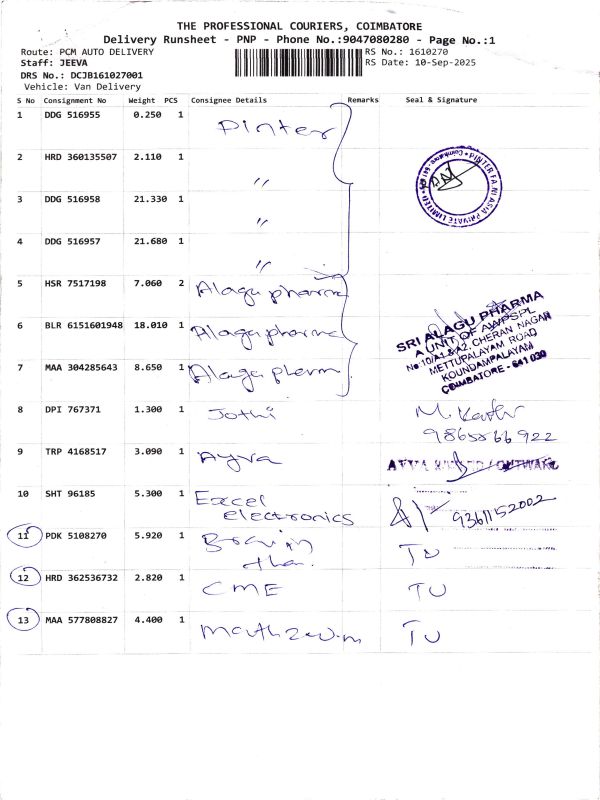 THE PROFESSIONAL COURIERS, COIMBATORE
Delivery Runsheet - PNP - Phone No.:9047080280 - Page No.:1
Route: PCM AUTO DELIVERY RS No.: 1610270
Staff: JEEVA RS Date: 10-Sep-2025
DRS No.: DCJB161027001
Vehicle: Van Delivery
S No Consignment No Weight PCS Consignee Details Remarks Seal & Signature
1 DDG 516955 0.250 1 Pinter
2 HRD 360135507 2.110 1 "
PRIVATE LIMITED
3 DDG 516958 21.330 1 "
4 DDG 516957 21.680 1 "
5 HSR 7517198 7.060 2 Alagu pharma
SRI ALAGU PHARMA
A UNIT OF AWPSPL
No 10/A1 & A2, CHERAN NAGAR
METTUPALAYAM ROAD
KOUNDAMPALAYAM
COIMBATORE - 641 030
6 BLR 6151601948 18.010 1 Alagu pharma
7 MAA 304285643 8.650 1 Alagu
8 DPI 767371 1.300 1 Jothi M.
9 TRP 4168517 3.090 1 Ayva
10 SHT 96185 5.300 1 Excel
electronics 9361152002
11 PDK 5108270 5.920 1 TU
12 HRD 362536732 2.820 1 CME TU
13 MAA 577808827 4.400 1 TU